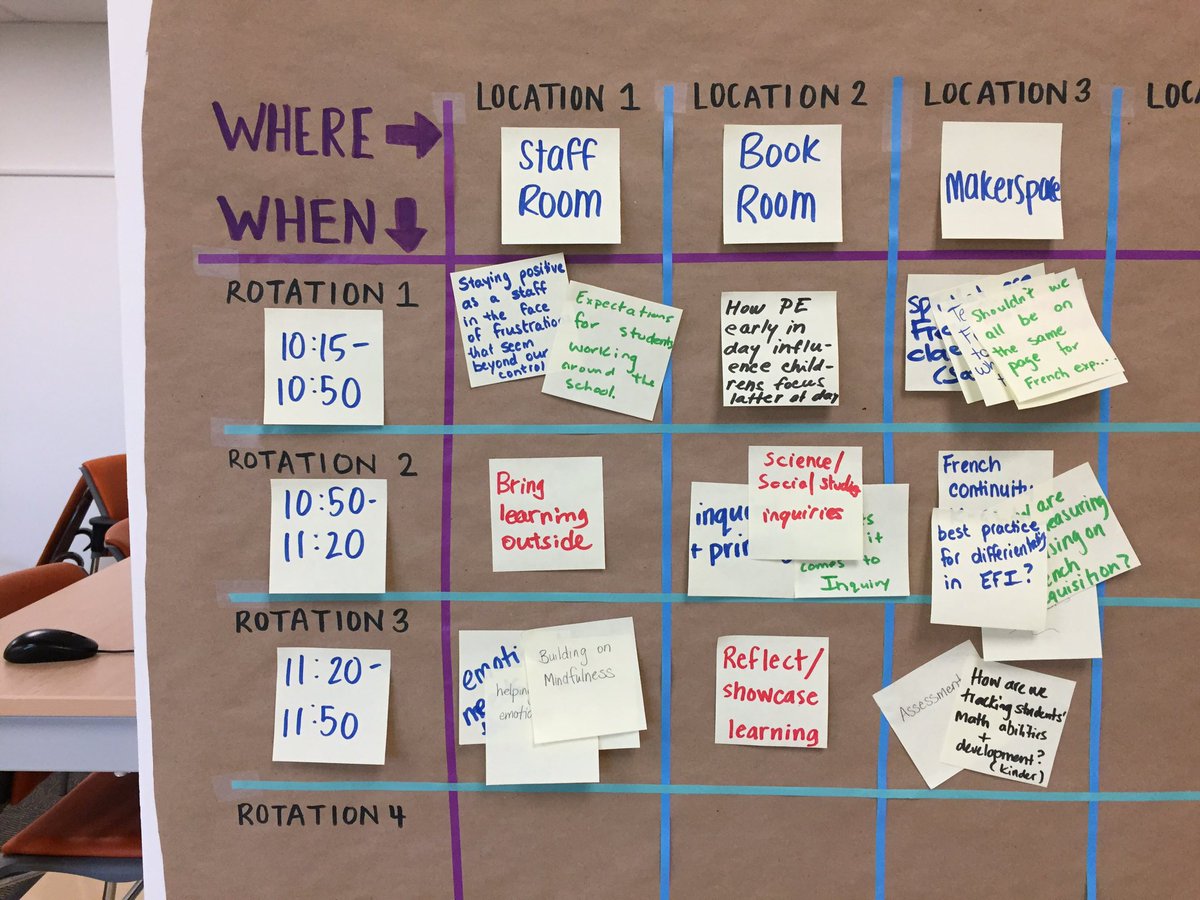 WHERE
WHEN
LOCATION 1
LOCATION 2
LOCATION 3
LOC
Staff
Room
Book
Room
Makerspace
ROTATION 1
10:15-
10:50
Staying positive
as a staff
in the face
of frustration
that seem
beyond our
control
Expectations
for students
working
around the
school.
How PE
early in
day influ-
ence child-
rens focus
latter of day
Shouldn't we
all be on
the same
page for
French exp....
ROTATION 2
10:50-
11:20
Bring
learning
outside
Science/
Social studies
inquiries
inqui
+ pri
it
comes to
Inquiry
French
continuit
best practice
for differientiating
in EFI?
are
easuring
sing on
ench
quisition?
ROTATION 3
11:20-
11:50
emoti
ne
helping
emotio
Building on
Mindfulness
Reflect/
showcase
learning
Assessment
How are we
tracking students'
Math abilities
+
development?
(kinder)
ROTATION 4